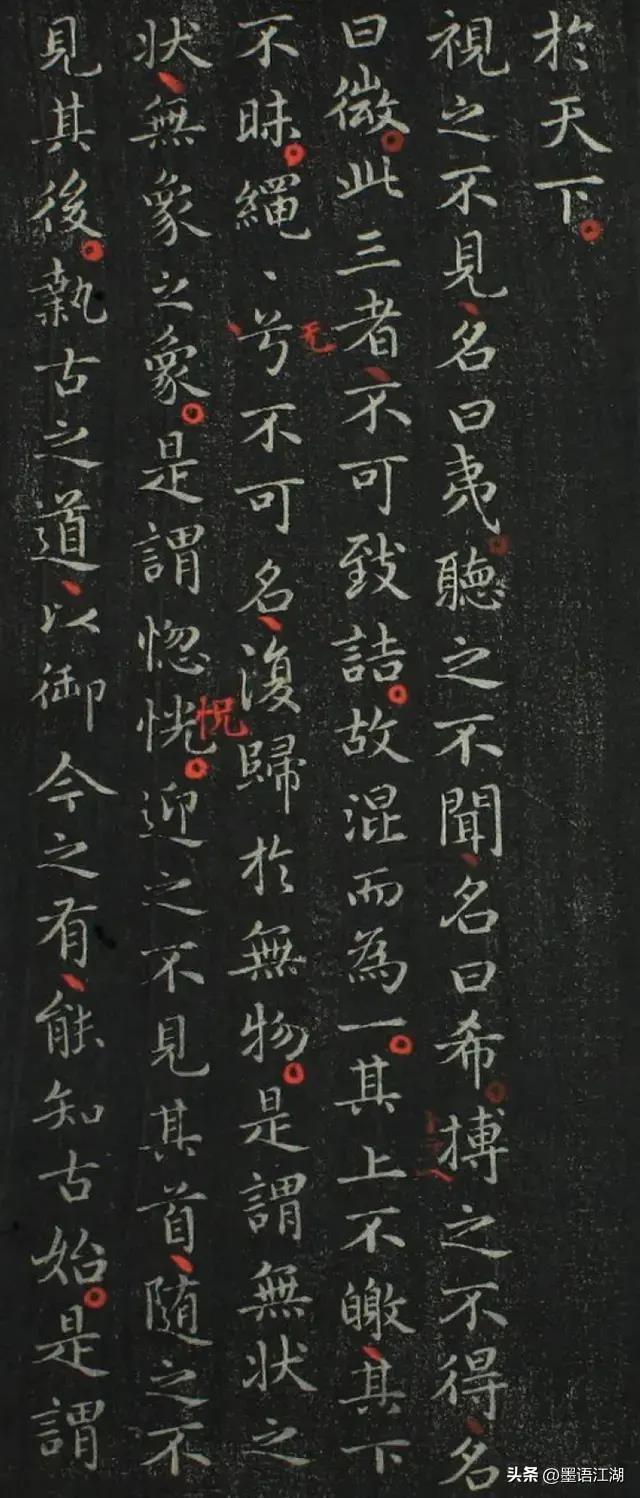 於天下。
視之不見、名曰夷。聽之不聞、名曰希。搏之不得、名
曰微。此三者、不可致詰。故混而為一。其上不皦、其下
不昧。繩、兮不可名、復歸於無物。是謂無状之
状、無象之象。是謂惚恍。迎之不見其首、随之不
見其後。執古之道、以御今之有、能知古始。是謂
无
怳
头条 @墨语江湖